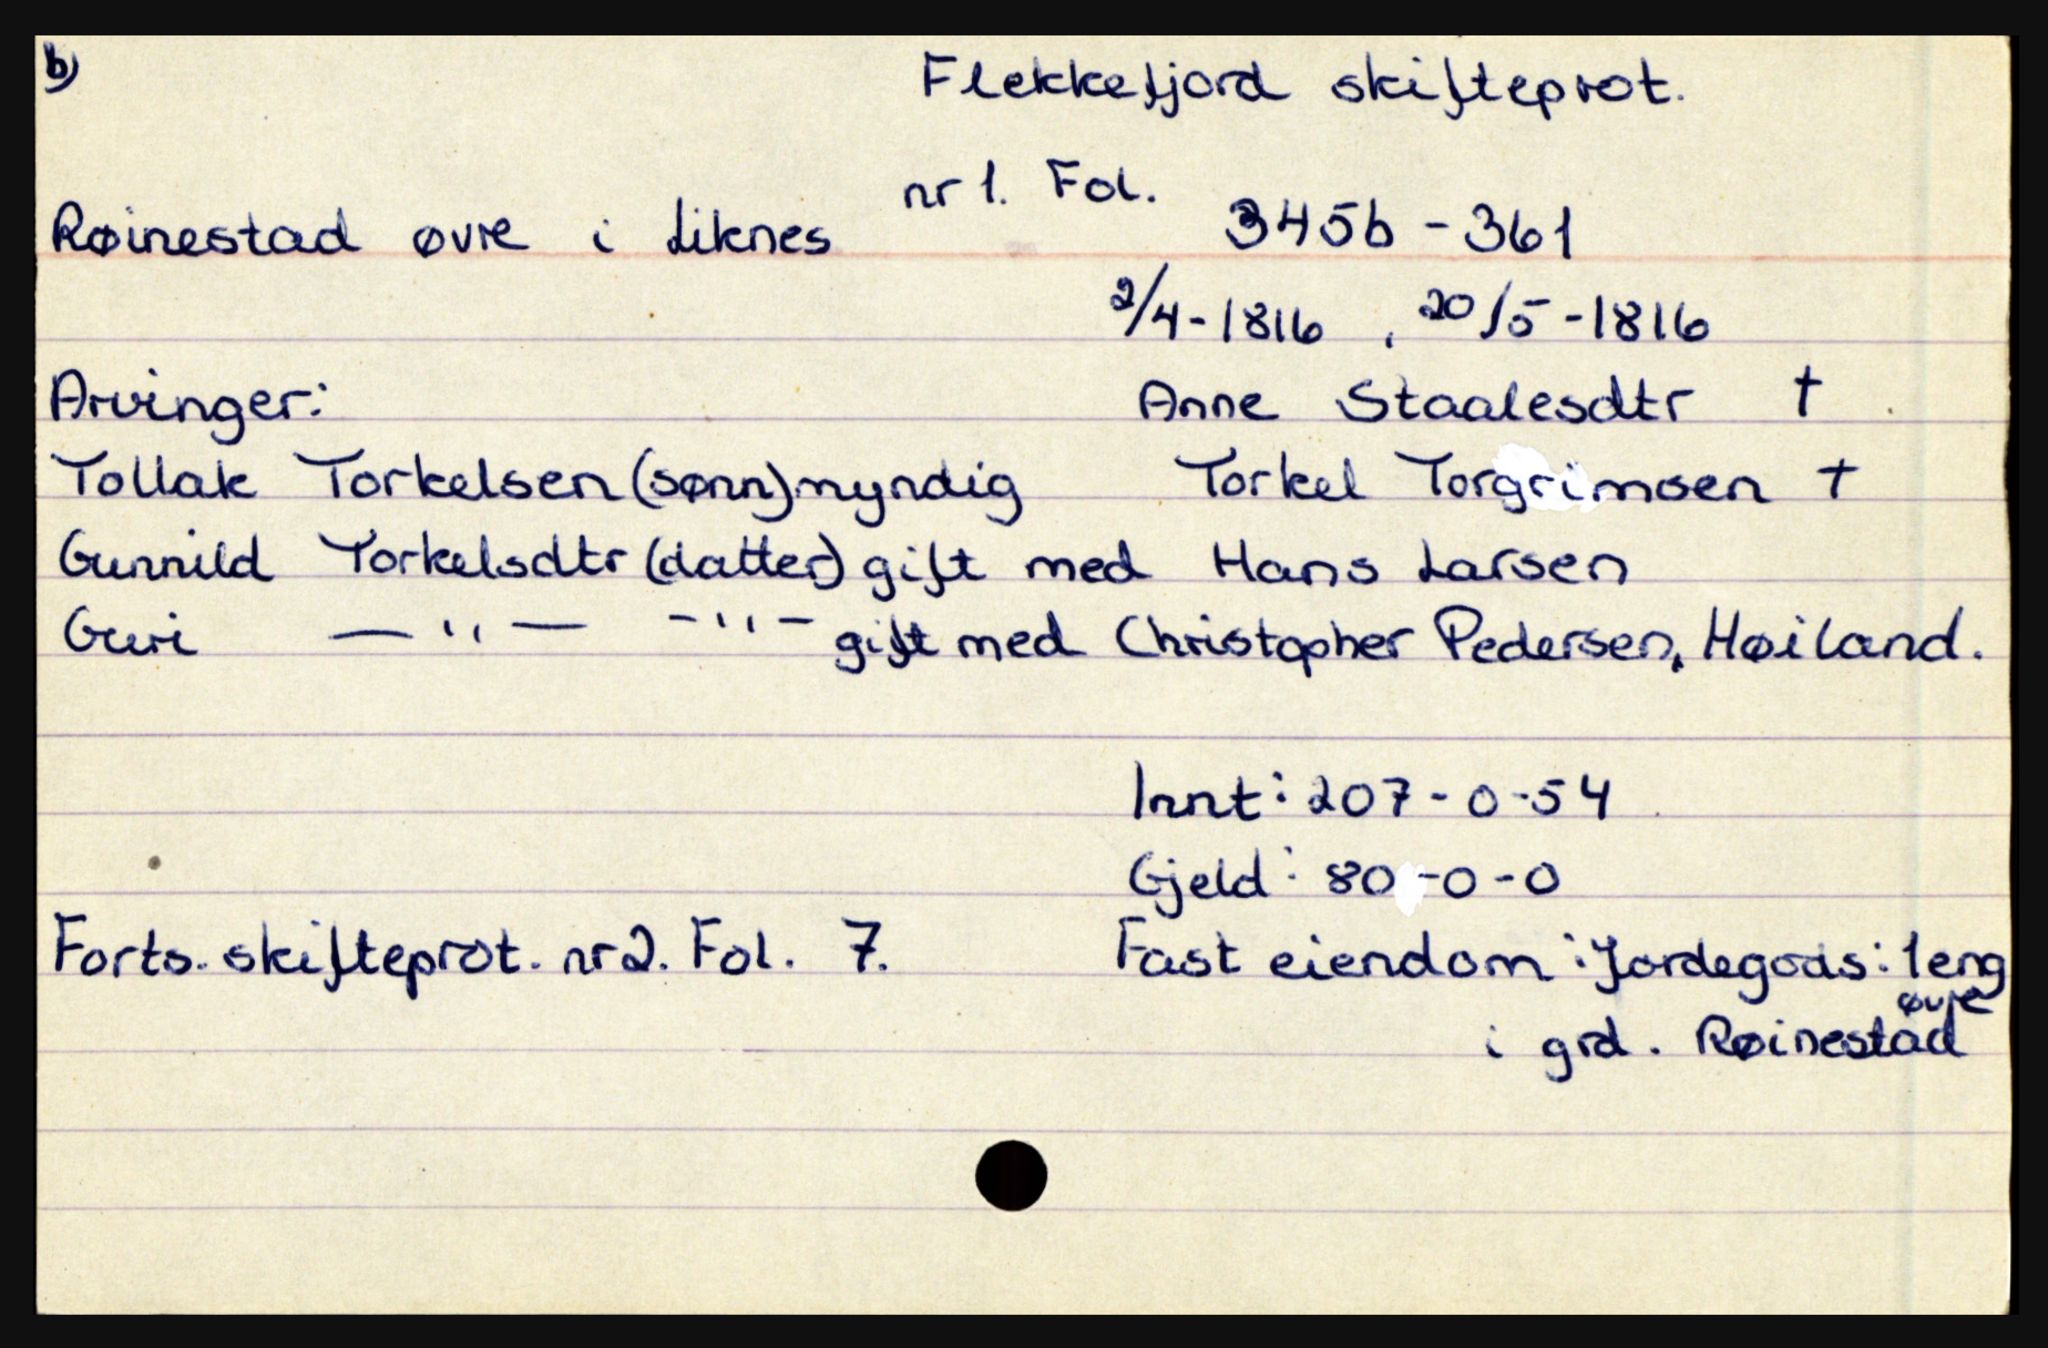 b)
Flekkefjord skifteprot.
nr 1. Fol.
Røinestad øvre i Liknes 345b - 361
2/4-1816 , 20/5-1816
Arvinger: Anne Staalesdtr †
Tollak Torkelsen (sønn) myndig Torkel Torgrimsen †
Gunnild Torkelsdtr (datter) gift med Hans Larsen
Guri — " — - " - gift med Christopher Pedersen, Høiland.
Innt: 207-0-54
Gjeld: 80-0-0
Forts. skifteprot. nr 2. Fol. 7. Fast eiendom: Jordegods: 1 eng
øvre
i grd. Røinestad